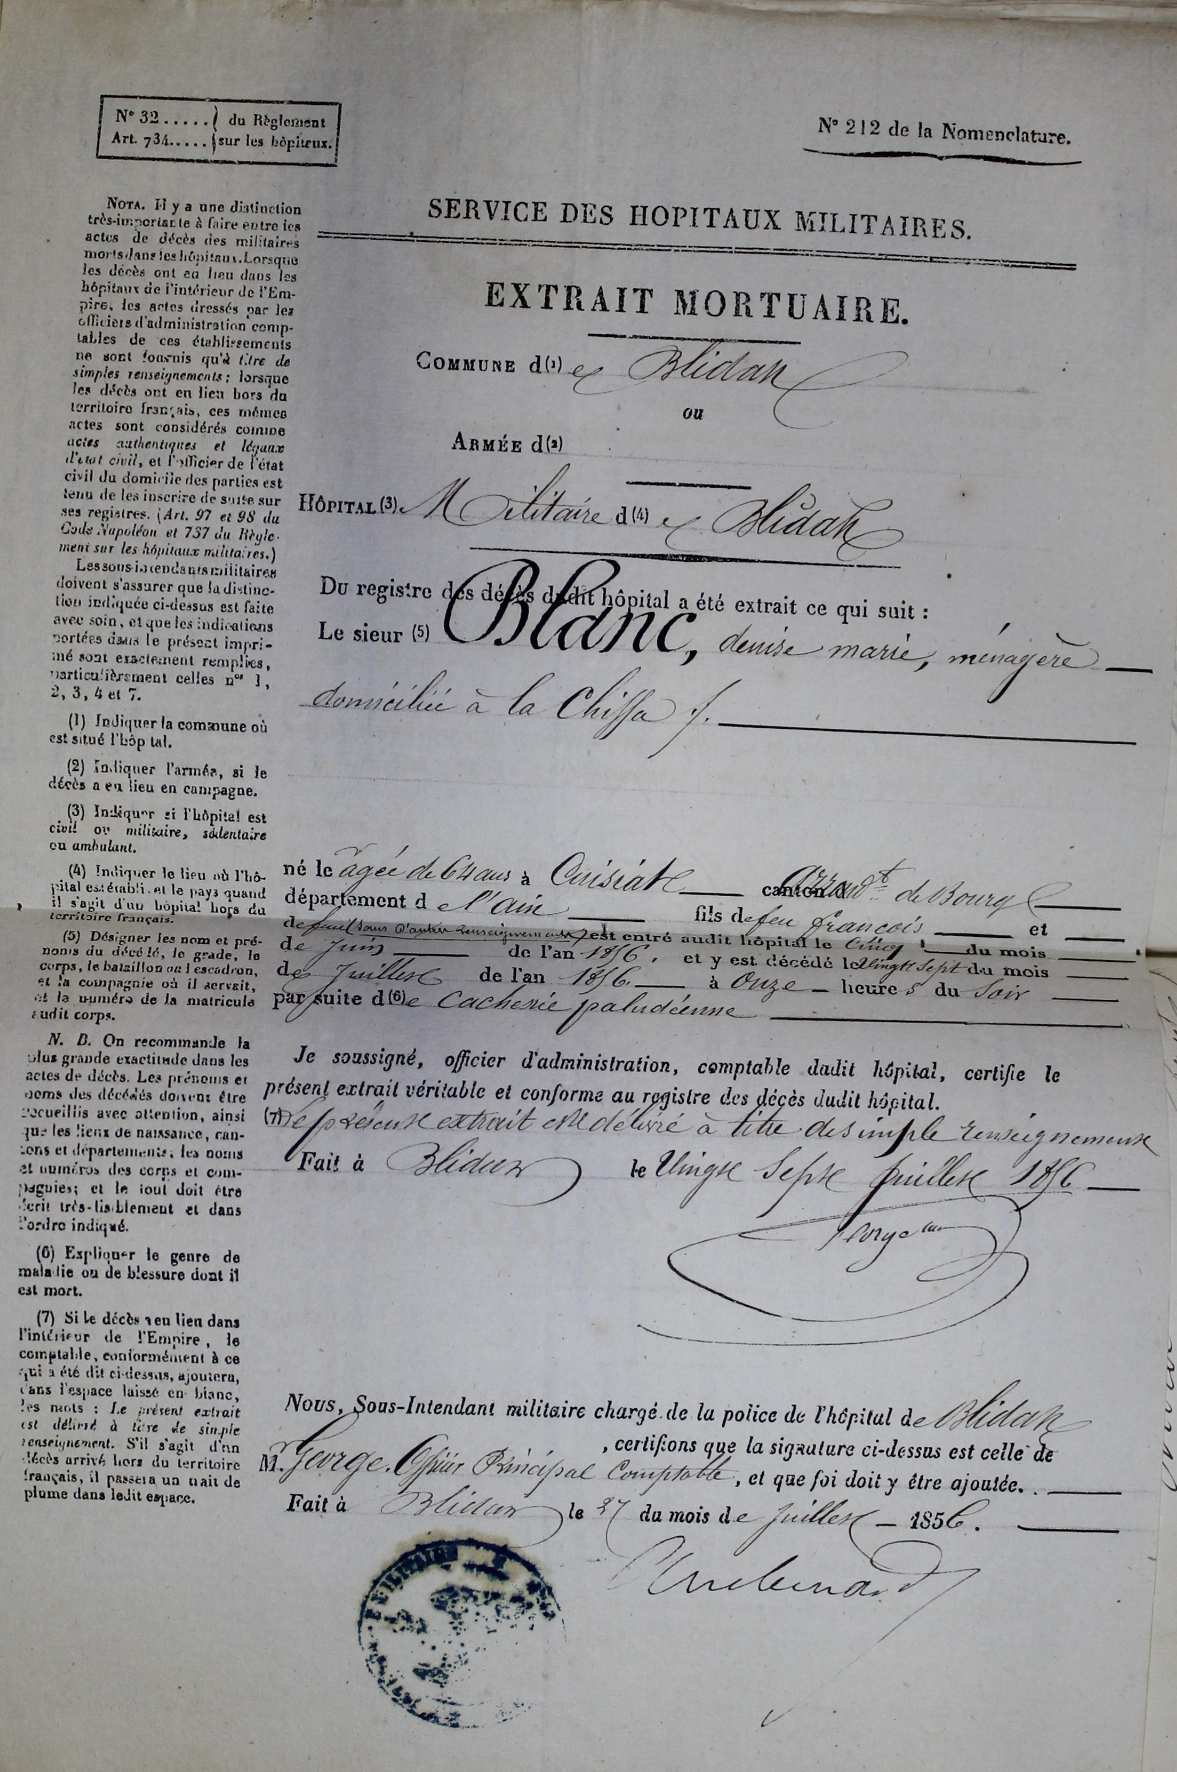 N° 32 ..... du Règlement
Art. 734..... sur les hôpitaux.
N° 212 de la Nomenclature.
SERVICE DES HOPITAUX MILITAIRES.
EXTRAIT MORTUAIRE.
COMMUNE d(1) e Blidah
ou
ARMÉE d(2)
HÔPITAL (3) Militaire d(4) e Blidah
Du registre des décès dudit hôpital a été extrait ce qui suit :
Le sieur (5) Blanc, denise marie, ménagère
domiciliée à la Chiffa /.
né le agée de 64 ans à Cuisiat canton d arrondt de Bourg
département d e l'ain fils de feu françois et
de feue (sans d'autre renseignements) est entré audit hôpital le Cinq du mois
de Juin de l'an 1856, et y est décédé le Vingt Sept du mois
de Juillet de l'an 1856 à Onze heures du Soir
par suite d(6) e Cachexie paludéenne
Je soussigné, officier d'administration, comptable dudit hôpital, certifie le
présent extrait véritable et conforme au registre des décès dudit hôpital.
(7) Le présent extrait est délivré à titre de simple renseignement
Fait à Blidah le Vingt Sept Juillet 1856
George
Nous, Sous-Intendant militaire chargé de la police de l'hôpital de Blidah
, certifions que la signature ci-dessus est celle de
M. George, Officier Principal Comptable, et que foi doit y être ajoutée.
Fait à Blidah le 27 du mois de Juillet 1856.
NOTA. Il y a une distinction
très-importante à faire entre les
actes de décès des militaires
morts dans les hôpitaux. Lorsque
les décès ont eu lieu dans les
hôpitaux de l'intérieur de l'Em-
pire, les actes dressés par les
officiers d'administration comp-
tables de ces établissements
ne sont fournis qu'à titre de
simples renseignements; lorsque
les décès ont eu lieu hors du
territoire français, ces mêmes
actes sont considérés comme
actes authentiques et légaux
d'état civil, et l'officier de l'état
civil du domicile des parties est
tenu de les inscrire de suite sur
ses registres. (Art. 97 et 98 du
Code Napoléon et 737 du Règle-
ment sur les hôpitaux militaires.)
Les sous-intendants militaires
doivent s'assurer que la distinc-
tion indiquée ci-dessus est faite
avec soin, et que les indications
portées dans le présent impri-
mé sont exactement remplies,
particulièrement celles nos 1,
2, 3, 4 et 7.
(1) Indiquer la commune où
est situé l'hôpital.
(2) Indiquer l'armée, si le
décès a eu lieu en campagne.
(3) Indiquer si l'hôpital est
civil ou militaire, sédentaire
ou ambulant.
(4) Indiquer le lieu où l'hô-
pital est établi, et le pays quand
il s'agit d'un hôpital hors du
territoire français.
(5) Désigner les nom et pré-
noms du décédé, le grade, le
corps, le bataillon ou l'escadron,
et la compagnie où il servait,
et le numéro de la matricule
audit corps.
N. B. On recommande la
plus grande exactitude dans les
actes de décès. Les prénoms et
noms des décédés doivent être
recueillis avec attention, ainsi
que les lieux de naissance, can-
tons et départements; les noms
et numéros des corps et com-
pagnies; et le tout doit être
écrit très-lisiblement et dans
l'ordre indiqué.
(6) Expliquer le genre de
maladie ou de blessure dont il
est mort.
(7) Si le décès a eu lieu dans
l'intérieur de l'Empire, le
comptable, conformément à ce
qui a été dit ci-dessus, ajoutera,
dans l'espace laissé en blanc,
les mots : Le présent extrait
est délivré à titre de simple
renseignement. S'il s'agit d'un
décès arrivé hors du territoire
français, il passera un trait de
plume dans ledit espace.